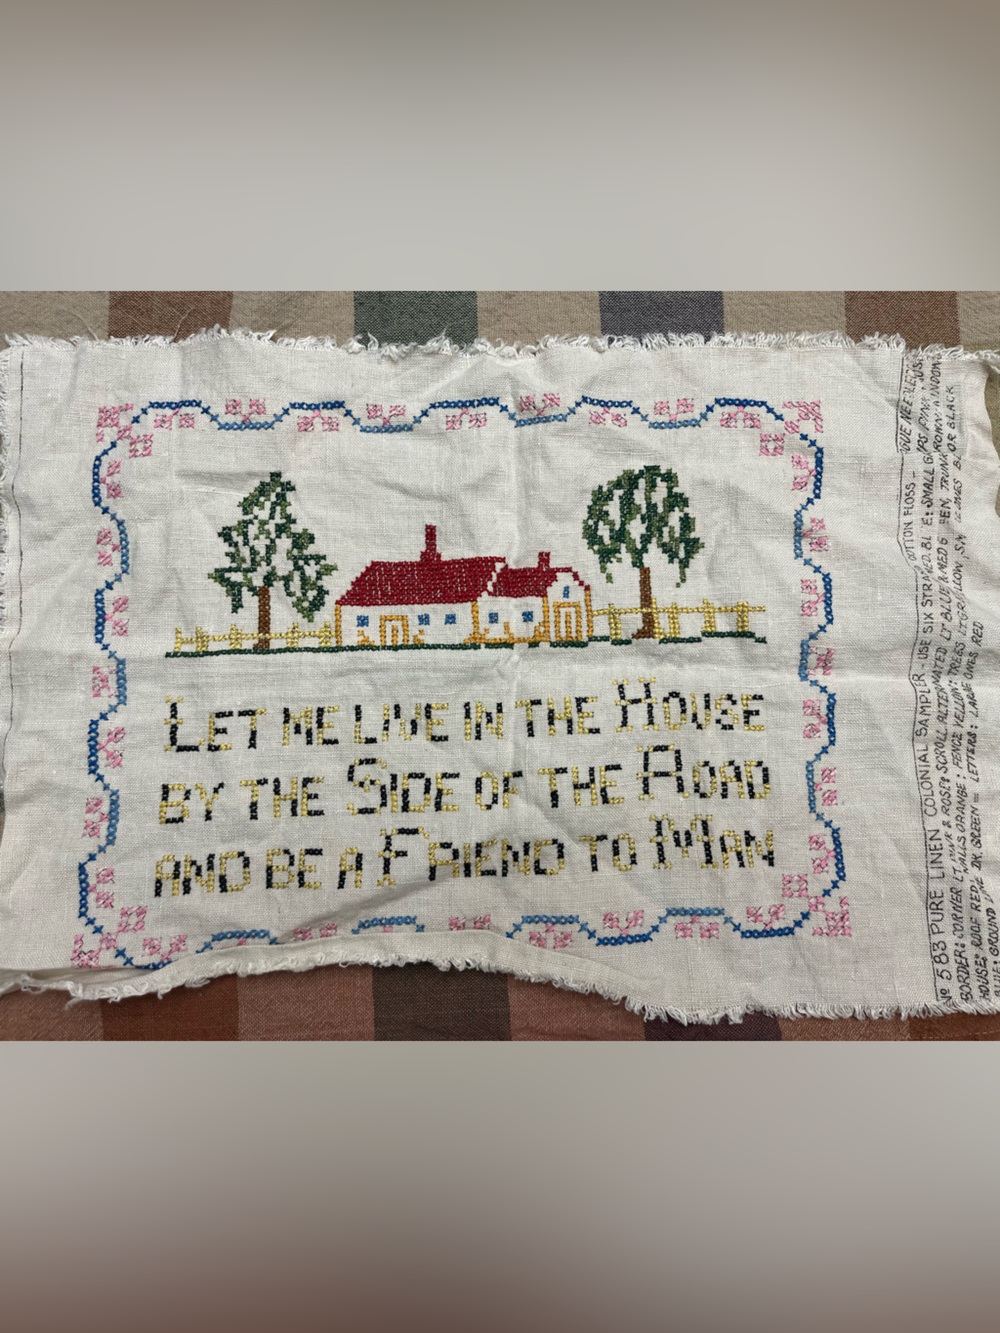 LET ME LIVE IN THE HOUSE
BY THE SIDE OF THE ROAD
AND BE A FRIEND TO MAN
No 583 PURE LINEN COLONIAL SAMPLER - USE SIX STRAND COTTON FLOSS -
BORDER: CORNER LT. PINK & ROSE: SCROLL ALTERNATED LT BLUE & MED
HOUSE: ROOF RED WALLS ORANGE: FENCE YELLOW: TREES
BLUE: GROUND LINE DK GREEN = LETTERS: LARGE ONES RED OR BLACK